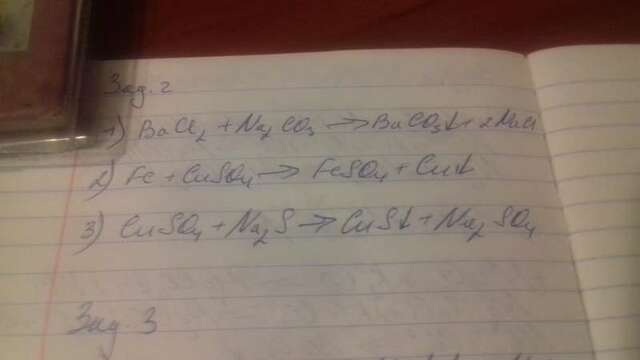 Зад. 2
1) BaCl₂ + Na₂CO₃ → BaCO₃↓ + 2NaCl
2) Fe + CuSO₄ → FeSO₄ + Cu↓
3) CuSO₄ + Na₂S → CuS↓ + Na₂SO₄
Зад. 3